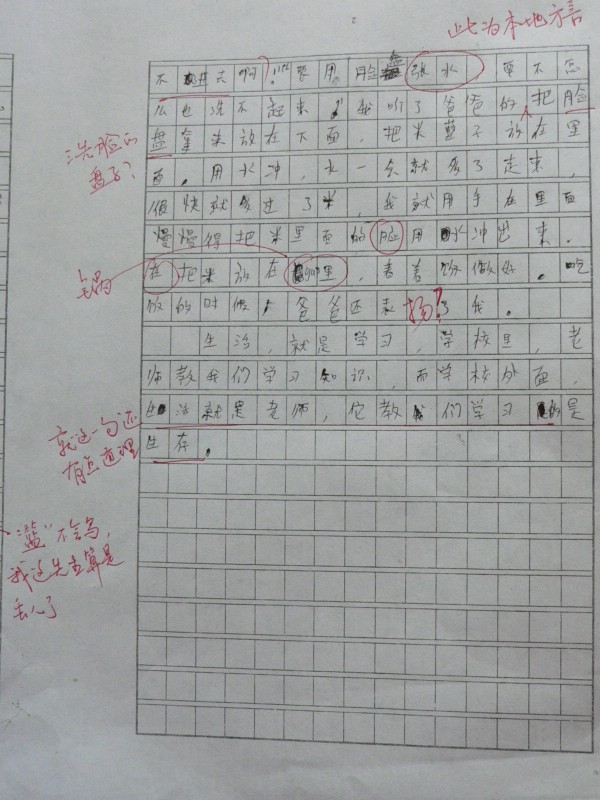 此为本地方言
不进去啊！"要用脸盘张水，要不怎
么也洗不起来！我听了爸爸的把脸
盘拿来放在下面，把米蓝子放在里
面，用水冲，水一会就多了走来，
很快就多过了米，我就用手在里面
慢慢得把米里面的脏用水冲出来。
在把米放在锅里，煮着饭做好。吃
饭的时候，爸爸还表扬了我。
生活，就是学习，学校里，老
师教我们学习知识，而学校外面，
生活就是老师，它教我们学习的是
生存。
洗脸的
盘子？
?
就这一句还
有点道理
"蓝"不会写，
我这先生算是
丢人了